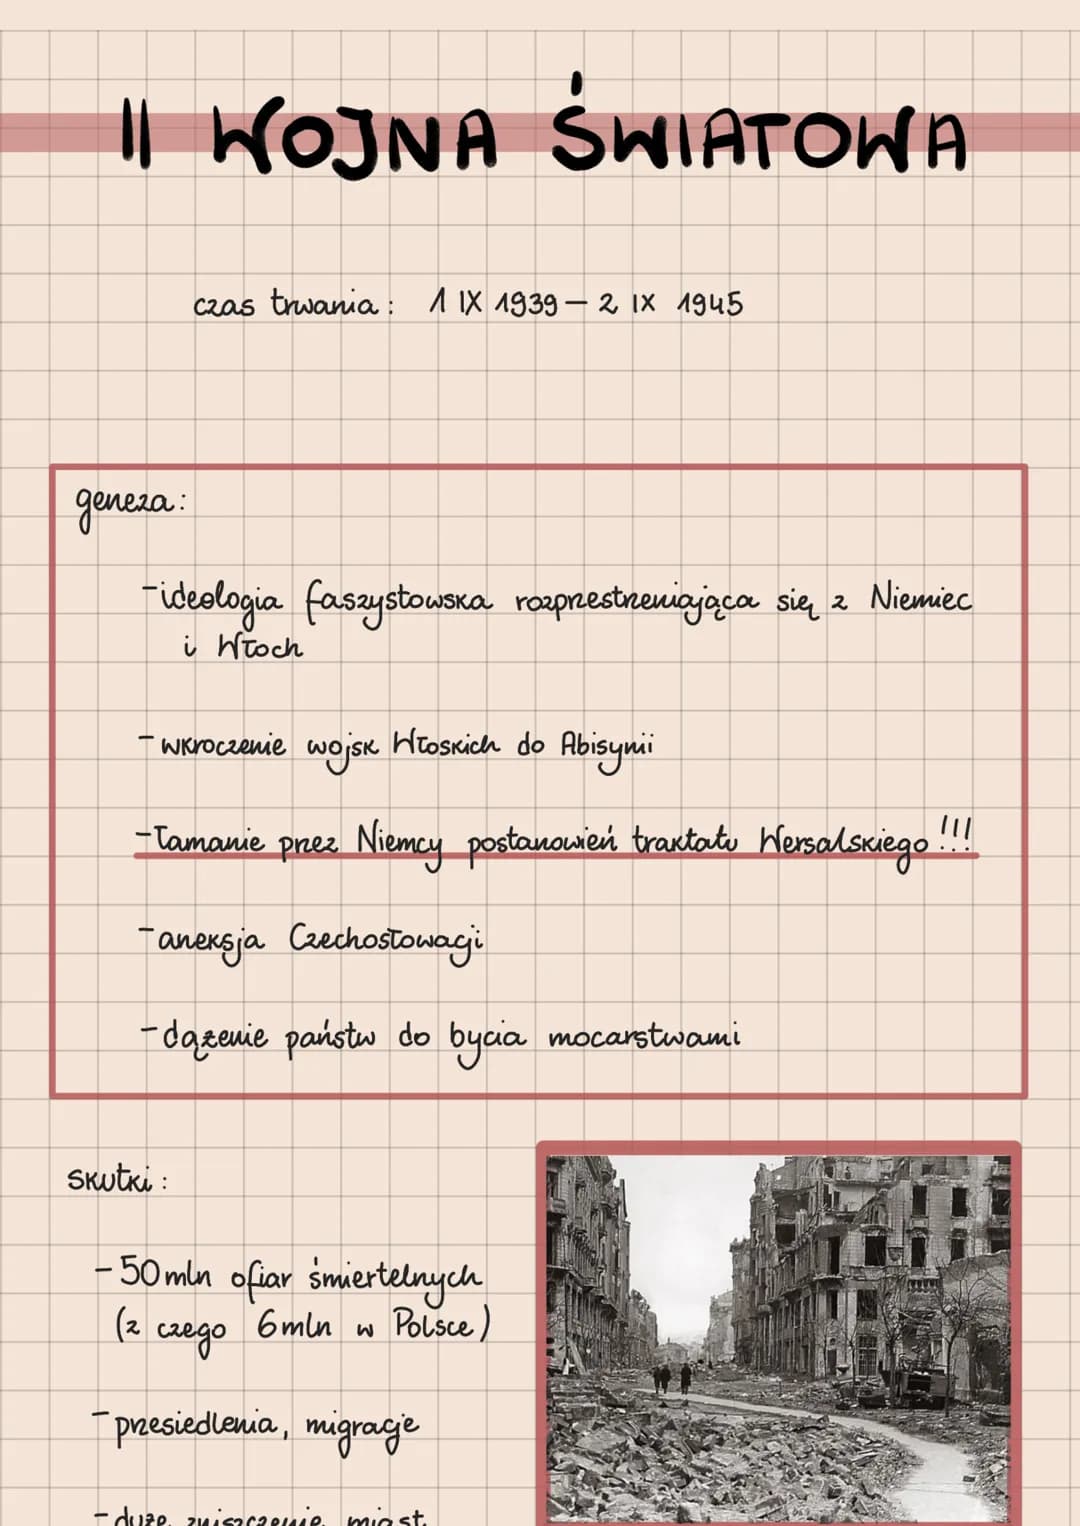 II WOJNA ŚWIATOWA
czas trwania: 1 IX 1939 – 2 IX 1945
geneza:
- ideologia faszystowska rozprzestrzeniająca się z Niemiec
i Włoch
- wkroczenie wojsk Włoskich do Abisynii
- łamanie przez Niemcy postanowień traktatu Wersalskiego !!!
- aneksja Czechosłowacji
- dążenie państw do bycia mocarstwami
skutki:
- 50 mln ofiar śmiertelnych
(z czego 6 mln w Polsce)
- przesiedlenia, migracje
- duże zniszczenie miast